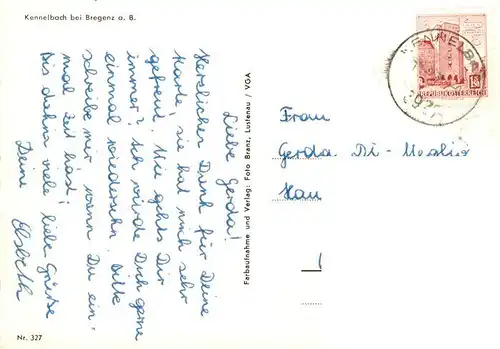 Kennelbach bei Bregenz a. B.
Liebe Gerda!
Herzlichen Dank für Deine
Karte, sie hat mich sehr
gefreut. Wie gehts Dir
immer? Ich würde Dich gerne
einmal wiedersehn. Bitte
schreibe mir wenn Du ein-
mal Zeit hast!
Bis dahin viele liebe Grüsse
Deine Elsbeth
Nr. 327
Farbaufnahme und Verlag: Foto Branz, Lustenau / VGA
REPUBLIK ÖSTERREICH
Frau
Gerda